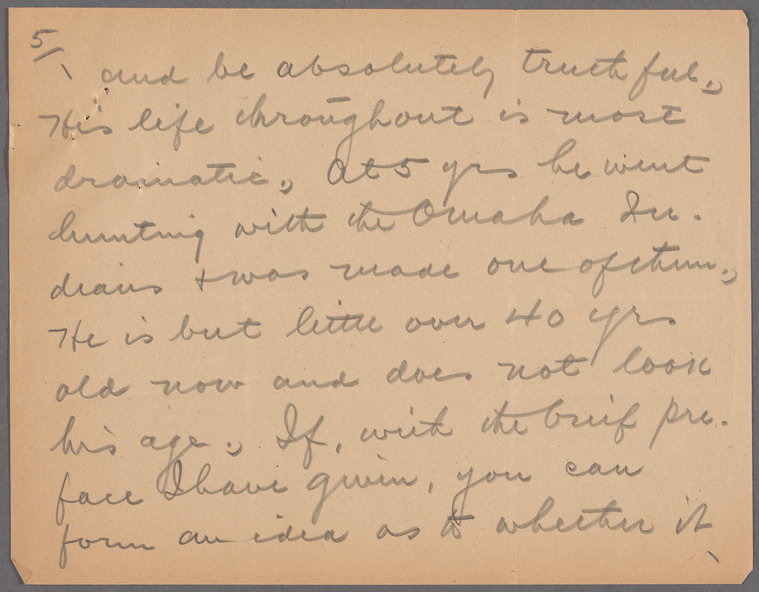 5/
and be absolutely truthful.
His life throughout is most
dramatic. At 5 yrs he went
hunting with the Omaha In-
dians & was made one of them.
He is but little over 40 yrs
old now and does not look
his age. If, with the brief pre-
face I have given, you can
form an idea as to whether it